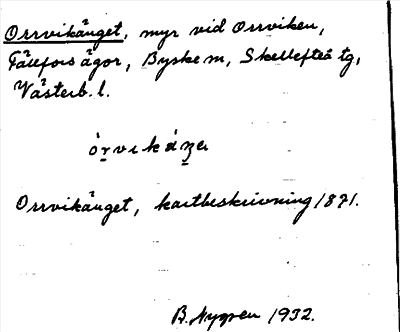 Orrvikänget, myr vid Orrviken,
Fällfors ägor, Byske m, Skellefteå tg,
Västerb. l.
Orrvikänget, kartbeskrivning 1871.
B. Nygren 1932.